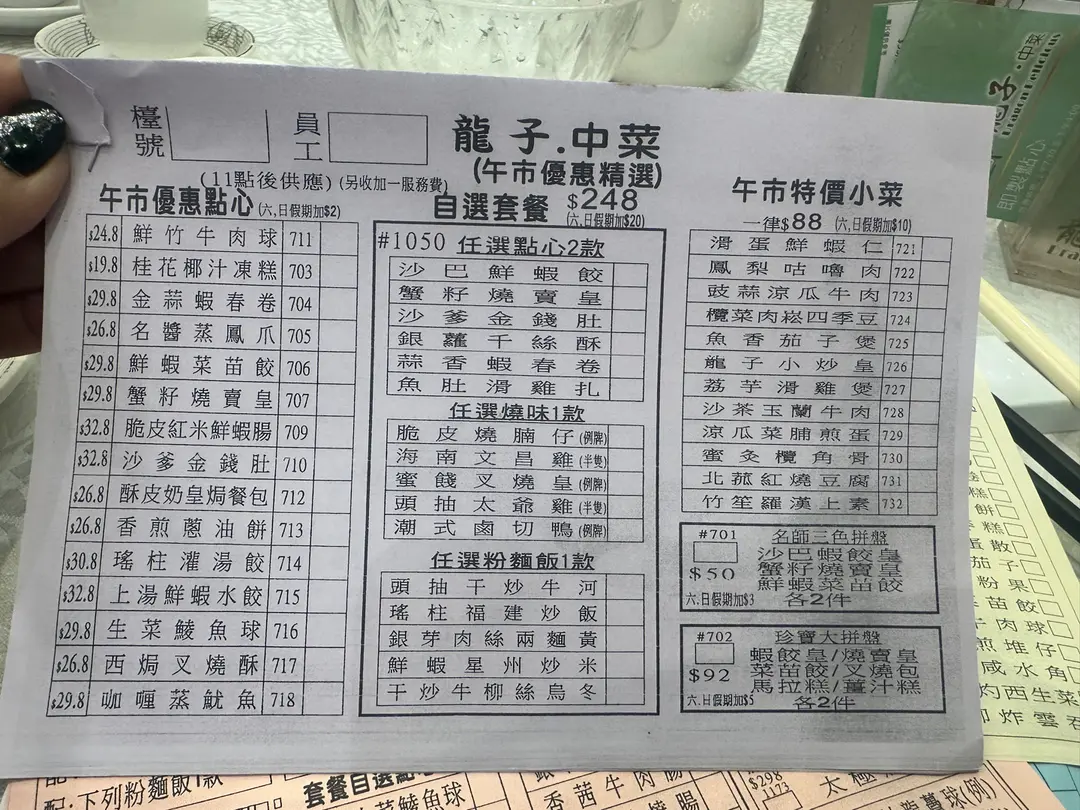 檯號
員工
龍子.中菜
(午市優惠精選)
(11點後供應) (另收加一服務費)
午市優惠點心 (六,日假期加$2)
$24.8 鮮竹牛肉球 711
$19.8 桂花椰汁凍糕 703
$29.8 金蒜蝦春卷 704
$26.8 名醬蒸鳳爪 705
$29.8 鮮蝦菜苗餃 706
$29.8 蟹籽燒賣皇 707
$32.8 脆皮紅米鮮蝦腸 709
$32.8 沙爹金錢肚 710
$26.8 酥皮奶皇焗餐包 712
$26.8 香煎蔥油餅 713
$30.8 瑤柱灌湯餃 714
$32.8 上湯鮮蝦水餃 715
$29.8 生菜鯪魚球 716
$26.8 西焗叉燒酥 717
$29.8 咖喱蒸魷魚 718
自選套餐 $248
(六,日假期加$20)
#1050 任選點心2款
沙巴鮮蝦餃
蟹籽燒賣皇
沙爹金錢肚
銀蘿千絲酥
蒜香蝦春卷
魚肚滑雞扎
任選燒味1款
脆皮燒腩仔(例牌)
海南文昌雞(半隻)
蜜餞叉燒皇(例牌)
頭抽太爺雞(半隻)
潮式鹵切鴨(例牌)
任選粉麵飯1款
頭抽干炒牛河
瑤柱福建炒飯
銀芽肉絲兩麵黃
鮮蝦星州炒米
干炒牛柳絲烏冬
午市特價小菜
一律$88 (六,日假期加$10)
滑蛋鮮蝦仁 721
鳳梨咕嚕肉 722
豉蒜涼瓜牛肉 723
欖菜肉崧四季豆 724
魚香茄子煲 725
龍子小炒皇 726
荔芋滑雞煲 727
沙茶玉蘭牛肉 728
涼瓜菜脯煎蛋 729
蜜灸欖角骨 730
北菰紅燒豆腐 731
竹笙羅漢上素 732
#701 名師三色拼盤
沙巴蝦餃皇
$50 蟹籽燒賣皇
鮮蝦菜苗餃
六.日假期加$3 各2件
#702 珍寶大拼盤
蝦餃皇/燒賣皇
$92 菜苗餃/叉燒包
馬拉糕/薑汁糕
六.日假期加$5 各2件
子·中菜
即製點心
糕
餅
糕
蛋散
茄子
粉果
苗餃
牛肉球
煎堆仔
咸水角
灼西生菜
炸雲吞
配:下列粉麵飯1款
套餐自選點心
菜鯪魚球
香茜牛肉腸
$298